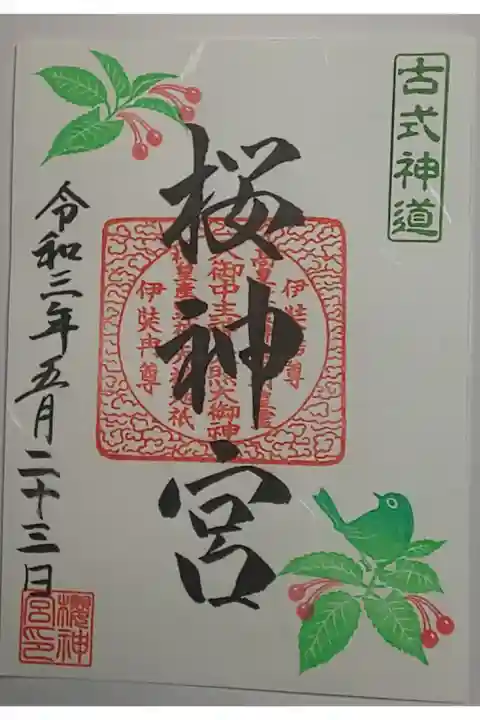 古式神道
桜神宮
伊弉冉尊
令和三年五月二十三日
櫻神
宮印